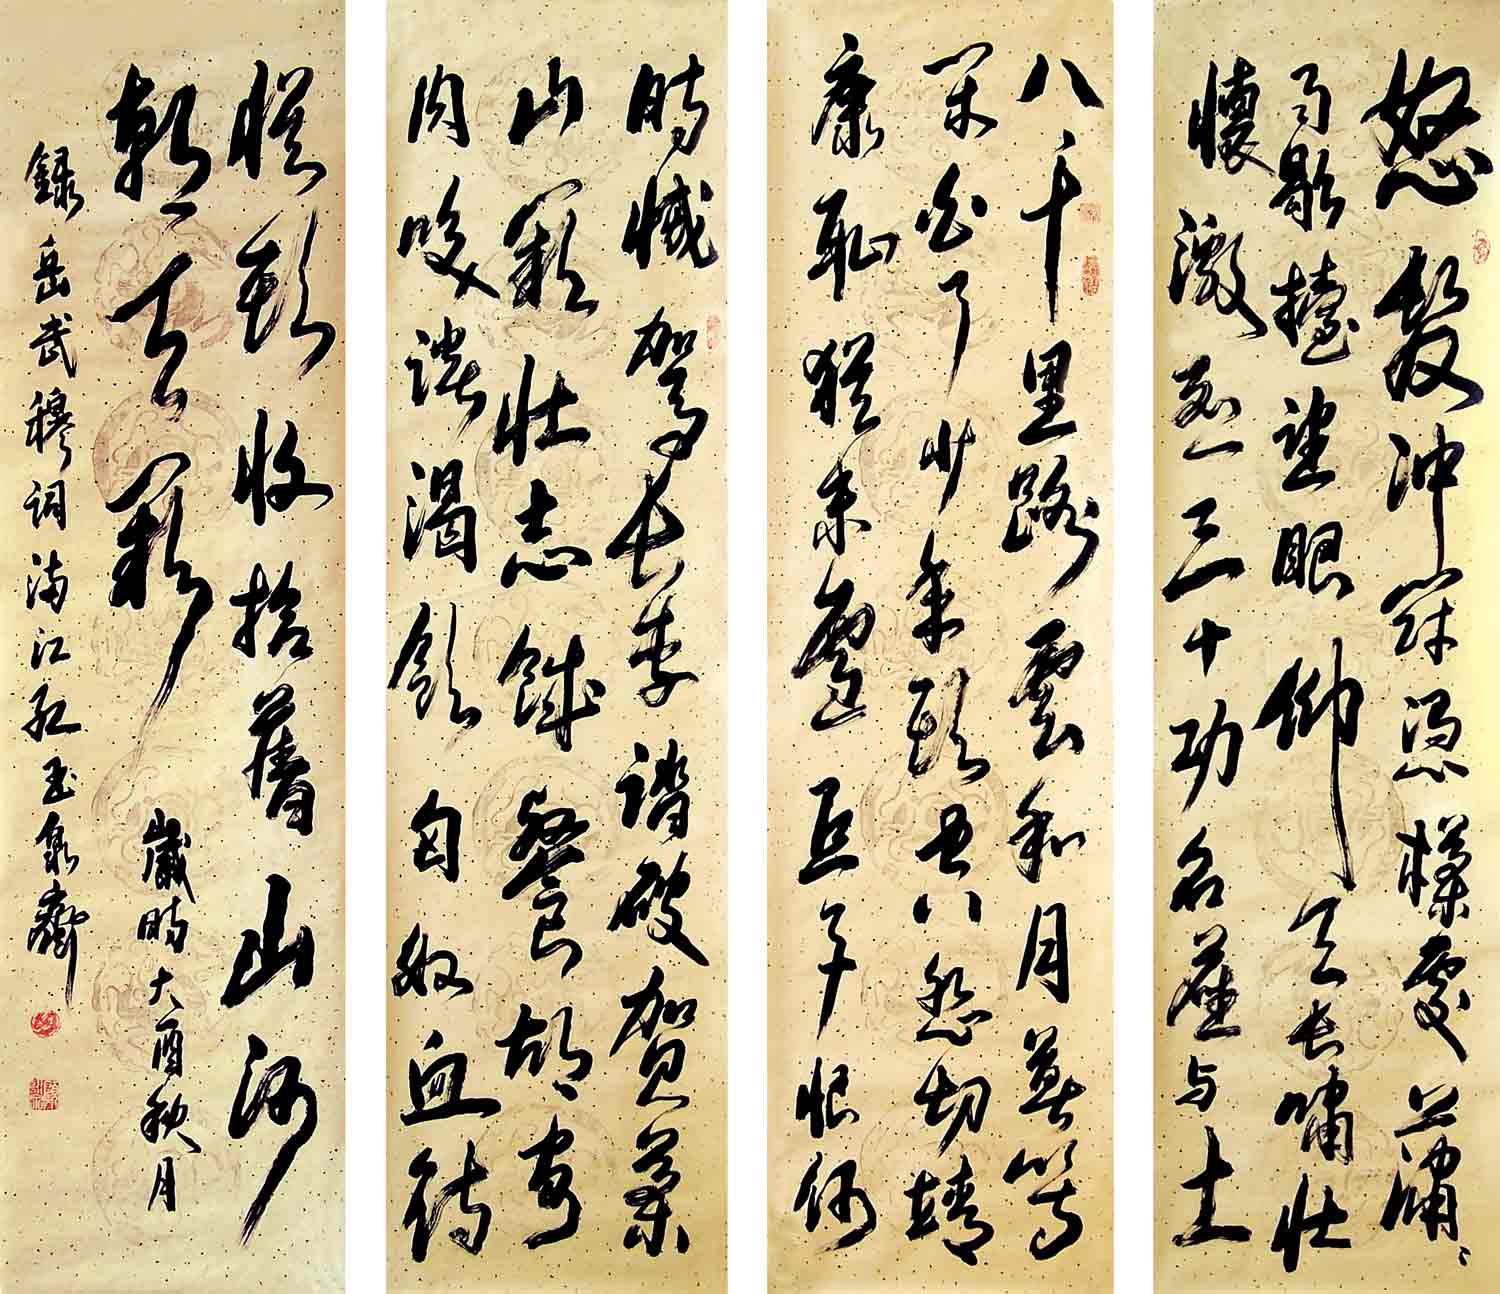 怒髮冲冠憑欄處瀟〻
雨歇擡望眼仰天長嘯壯
懷激烈三十功名塵与土
八千里路雲和月莫等
閑白了少年頭空悲切靖
康恥猶未雪臣子恨何
時憾駕長車踏破賀蘭
山闕壯志餓餐胡虜
肉笑談渴飲匈奴血待
從頭收拾舊山河
朝天闕
歲時酉秋月
錄岳武穆詞满江紅玉泉